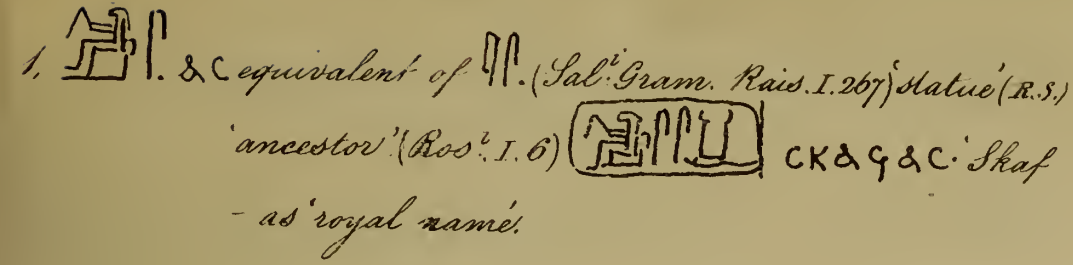 1. ⲁⲥ equivalent of (Salⁱ. Gram. Rais. I. 267) 'statue' (R.S.)
'ancestor' (Rosⁱ. I. 6) ⲥⲕⲁϥⲁⲥ. Skaf
- as 'royal name'.